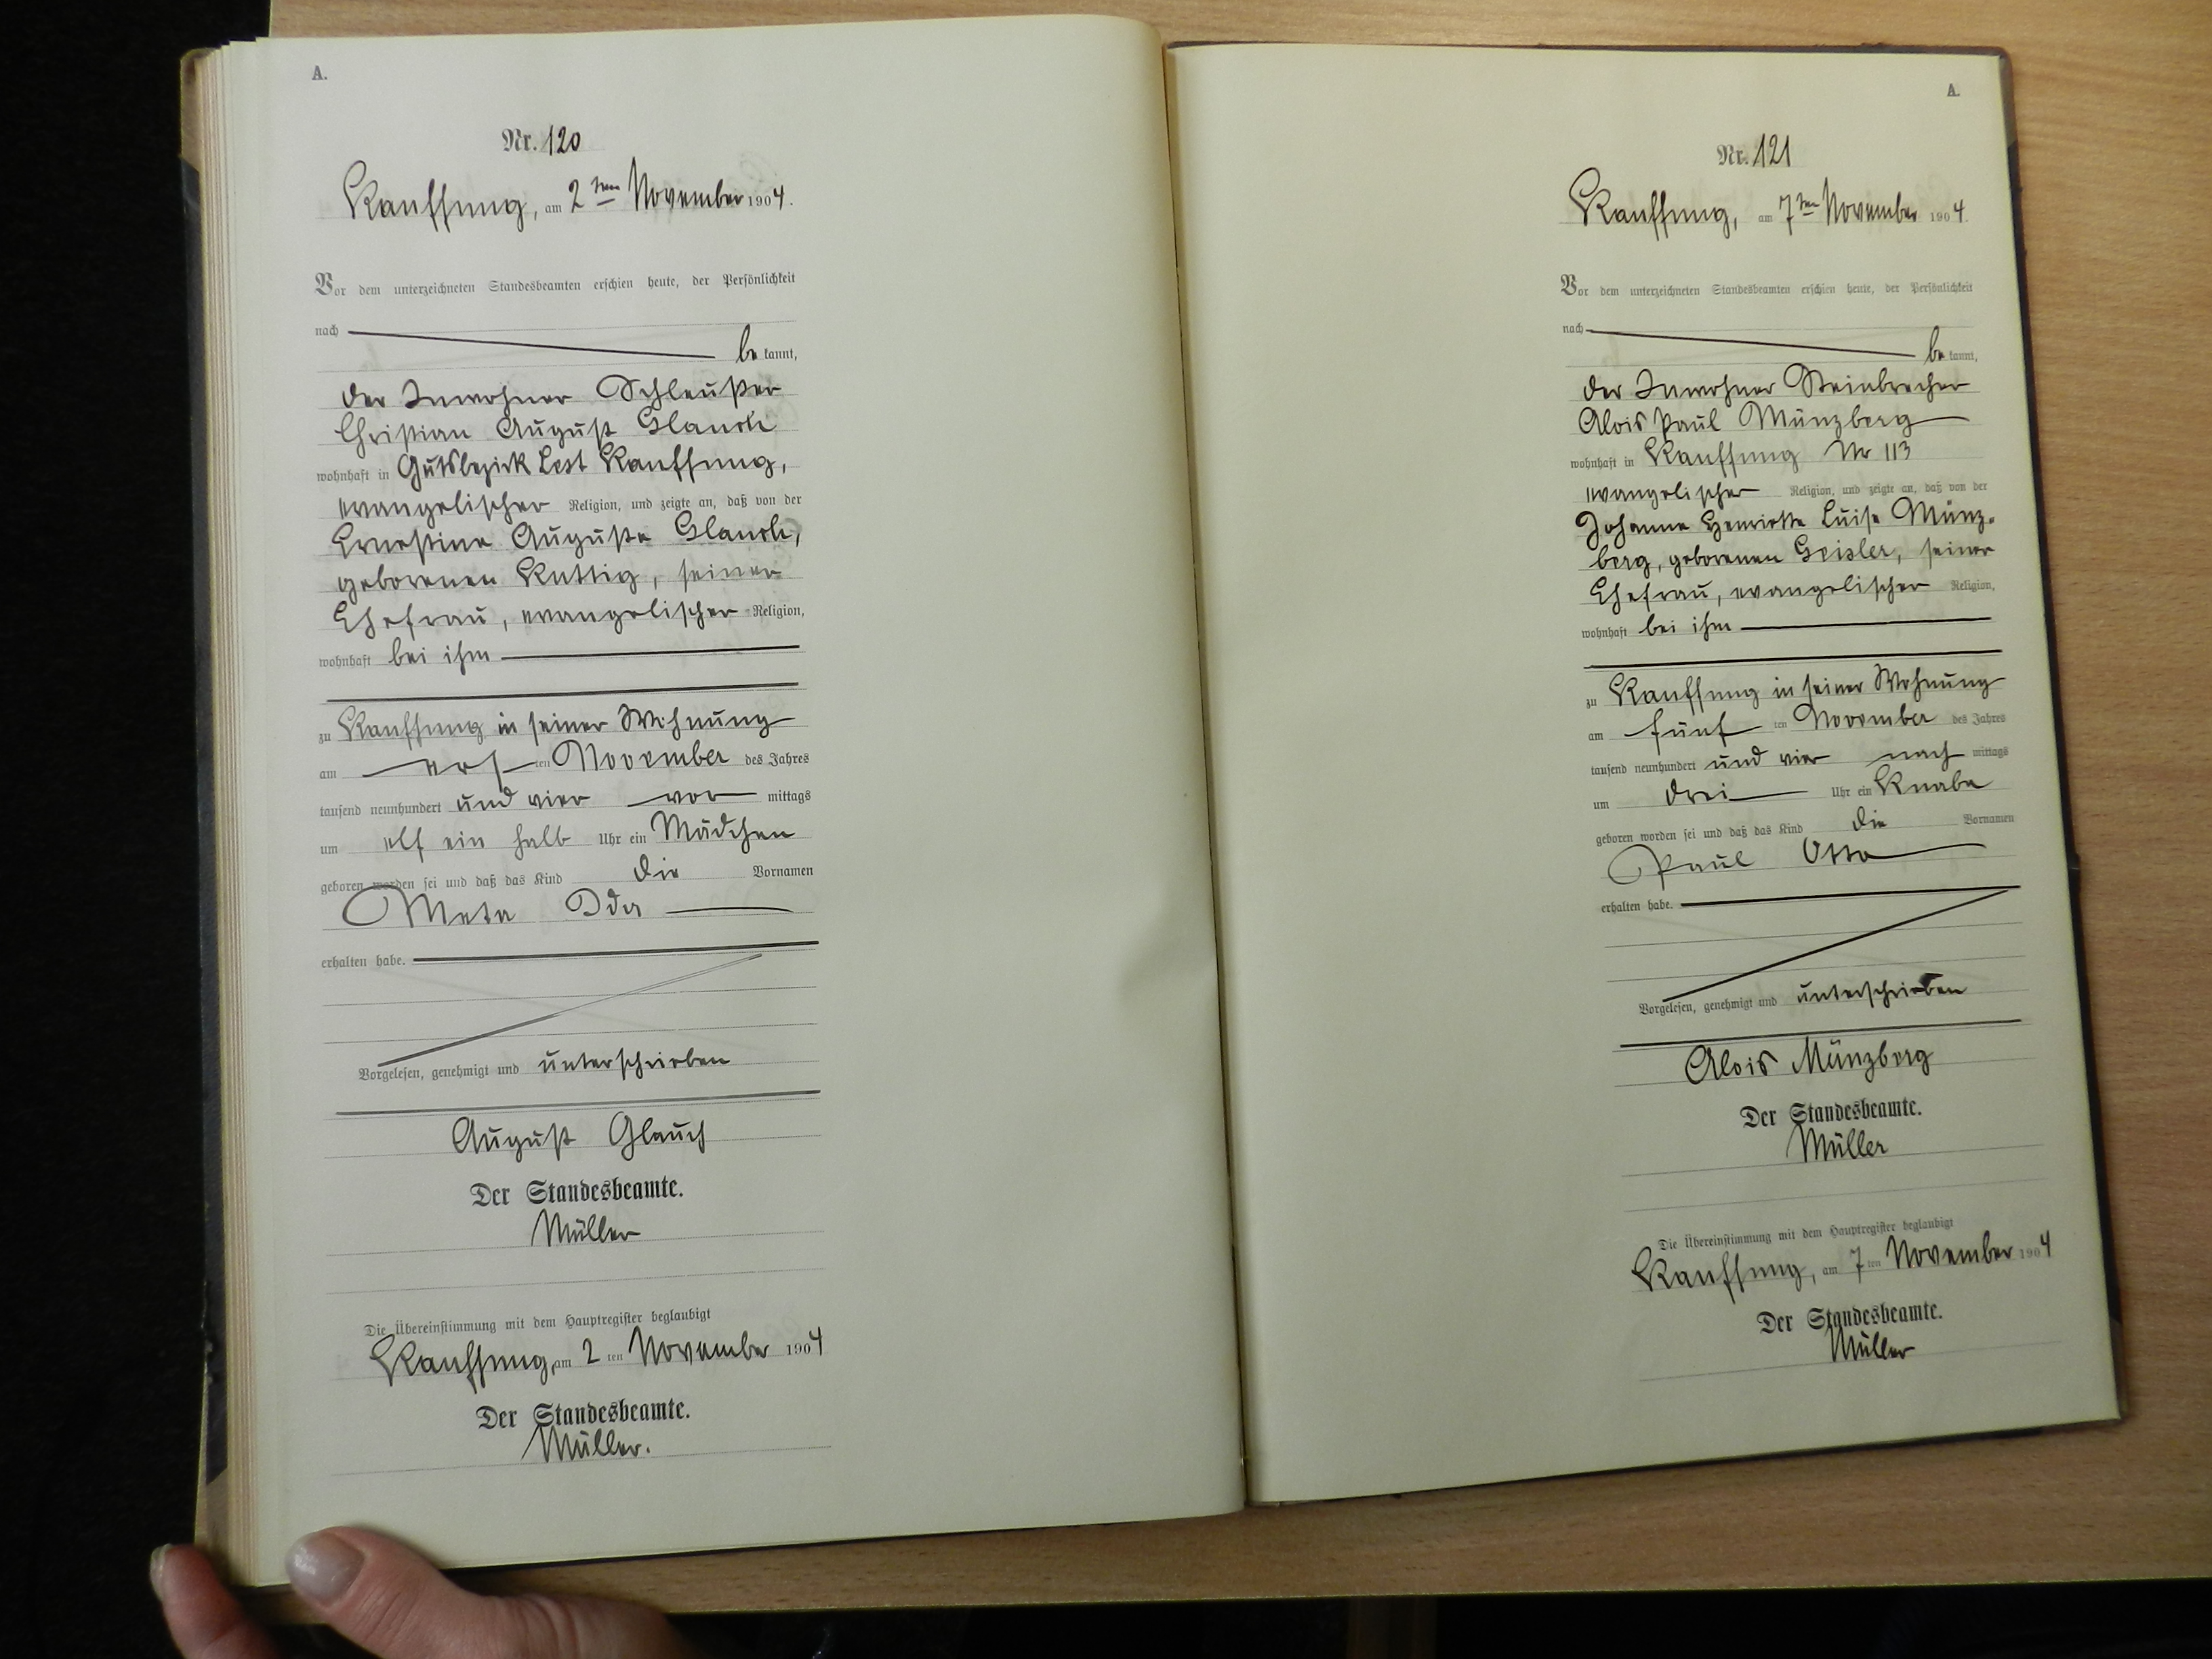 A.
Nr. 120
Kauffung, am 2ten November 1904.
Vor dem unterzeichneten Standesbeamten erschien heute, der Persönlichkeit
nach
be kannt,
der Inwohner Schleußer
Christian August Glauch
wohnhaft in Gutsbezirk Lest Kauffung,
evangelischer Religion, und zeigte an, daß von der
Ernestine Auguste Glauch,
geborenen Kuttig, seiner
Ehefrau, evangelischer Religion,
wohnhaft bei ihm
zu Kauffung in seiner Wohnung
am erst ten November des Jahres
tausend neunhundert und vier vor mittags
um elf ein halb Uhr ein Mädchen
geboren worden sei und daß das Kind die Vornamen
Meta Ida
erhalten habe.
Vorgelesen, genehmigt und unterschrieben
August Glauch
Der Standesbeamte.
Müller
Die Übereinstimmung mit dem Hauptregister beglaubigt
Kauffung, am 2 ten November 1904
Der Standesbeamte.
Müller.
A.
Nr. 121
Kauffung, am 7ten November 1904.
Vor dem unterzeichneten Standesbeamten erschien heute, der Persönlichkeit
nach
be kannt,
der Inwohner Steinbrecher
Alois Paul Münzberg
wohnhaft in Kauffung Nr 113
evangelischer Religion, und zeigte an, daß von der
Johanne Henriette Luise Münz-
berg, geborenen Geisler, seiner
Ehefrau, evangelischer Religion,
wohnhaft bei ihm
zu Kauffung in seiner Wohnung
am fünf ten November des Jahres
tausend neunhundert und vier nach mittags
um drei Uhr ein Knabe
geboren worden sei und daß das Kind die Vornamen
Paul Otto
erhalten habe.
Vorgelesen, genehmigt und unterschrieben
Alois Münzberg
Der Standesbeamte.
Müller
Die Übereinstimmung mit dem Hauptregister beglaubigt
Kauffung, am 7 ten November 1904
Der Standesbeamte.
Müller